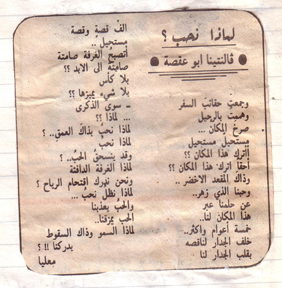 لماذا نحب ؟
ڤالنتينا ابو عقصة
وجمعت حقائب السفر
وهممت بالرحيل
صرخ المكان ...
مستحيل مستحيل
أترك هذا المكان ؟؟
أحقا اترك هذا المكان ؟؟
وذاك المقعد الاخضر ..
وحبنا الذي زهر..
عن حلمنا عبر
هذا المكان لنا..
خمسة أعوام واكثر..
خلف الجدار لناقصه
بقلب الجدار لنا
الف قصة وقصة
مستحيل ..
أتصبح الغرفة صامتة
صامتة الى الابد ؟؟
بلا كأس
بلا شيء يميزها ؟؟
ــ سوى الذكرى
... لماذا ؟؟
لماذا نحب بذاك العمق.. ؟
لماذا نحب
وقد ينسحق الحب.. ؟
لماذا الغرفة الدافئة
ونحن ندرك اقتحام الرياح ؟
لماذا نظل نحب ...
والحب يعذبنا
الحب يمزقنا..
لماذا السمو وذاك السقوط
يدركنا !! ؟
معليا